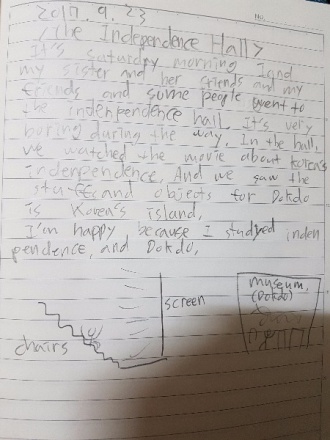 2017.9.23
<The Independence Hall>
It's saturday morning I and
my sister and her friends and my
friends and some people went to
the inderpendence hall. It's very
boring during the way. In the hall,
we watched the movie about korea's
inderpendence. And we saw the
and objects for Dokdo
is Korea's island.
I'm happy because I studyed inden
pendence, and Dokdo.
screen
chairs
museum.
(Dokdo)